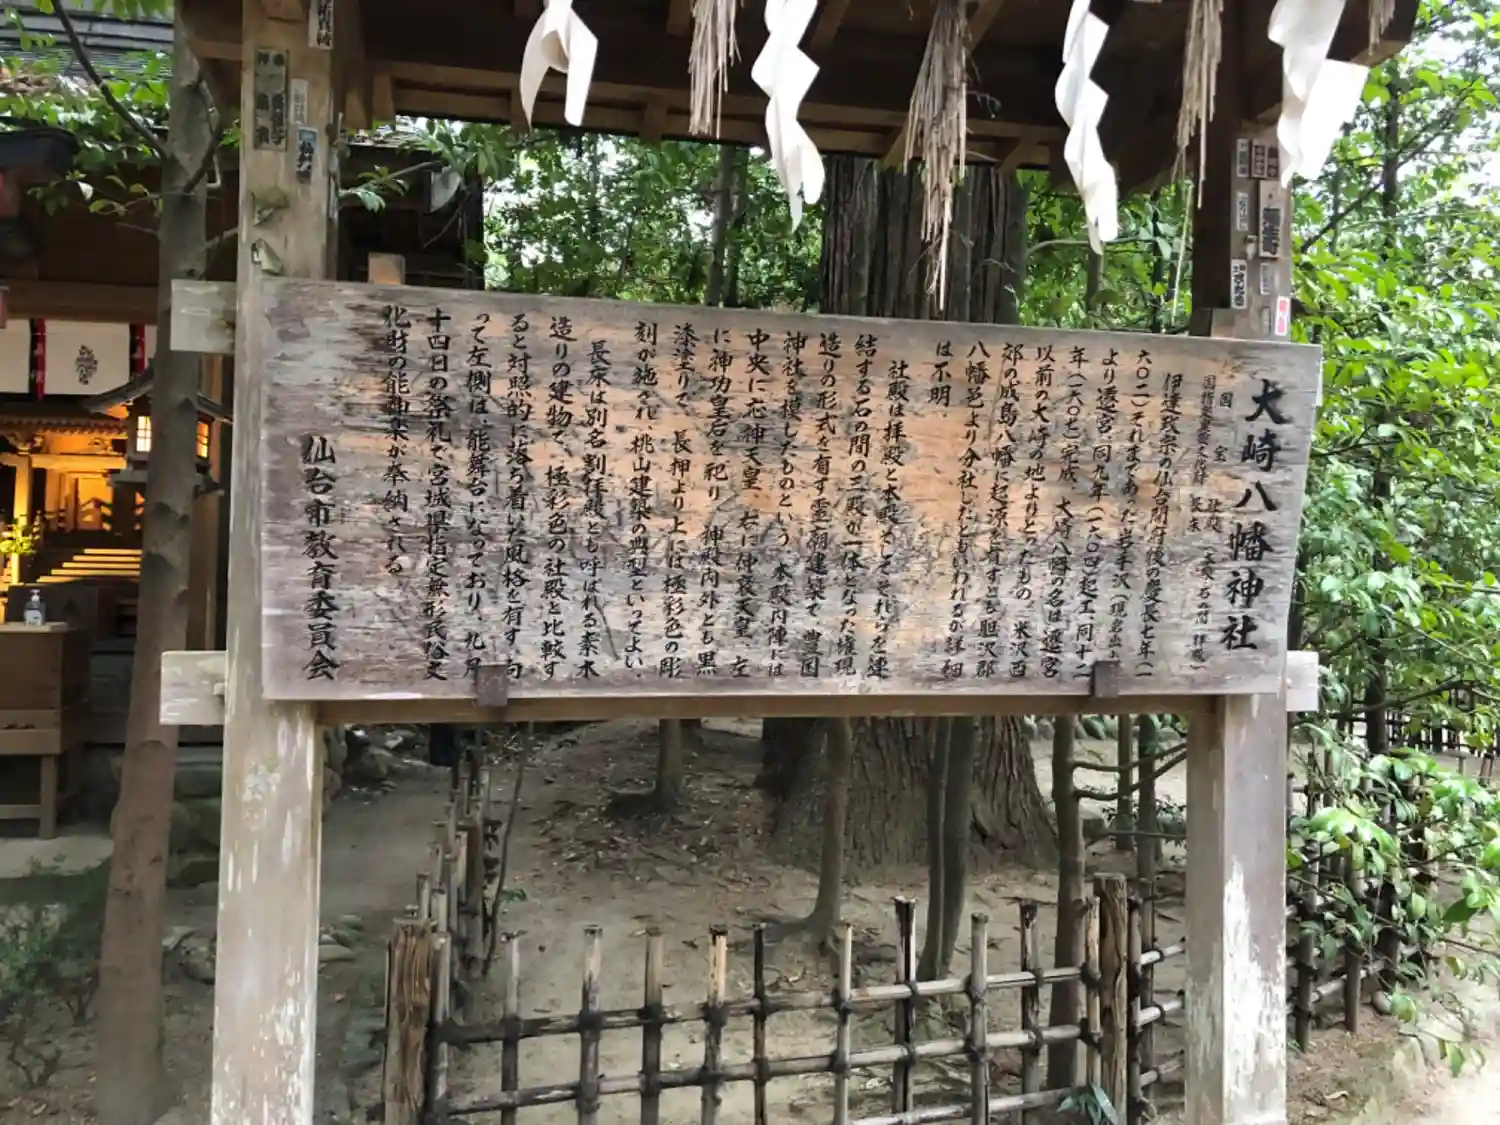 大崎八幡神社
国宝 社殿
国指定重要文化財 長床
伊達政宗の仙台開府後の慶長七年(一
六〇二)それまであった岩手沢(現岩出山)
より遷宮、同九年(一六〇四)起工、同十二
年(一六〇七)完成、大崎八幡の名は遷宮
以前の大崎の地よりとったもの。米沢西
郊の成島八幡に起源を有すとも胆沢郡
八幡邑より分社したともいわれるが詳細
は不明。
社殿は拝殿と本殿そしてそれらを連
結する石の間の三殿が一体となった権現
造りの形式を有す霊廟建築で、豊国
神社を模したものという。本殿内陣には
中央に応神天皇、右に仲哀天皇、左
に神功皇后を祀り、神殿内外とも黒
漆塗りで、長押より上には極彩色の彫
刻が施され、桃山建築の典型といってよい。
長床は別名割拝殿とも呼ばれる素木
造りの建物で、極彩色の社殿と比較す
ると対照的に落ち着いた風格を有す。向
って左側は、能舞台になっており、九月
十四日の祭礼で宮城県指定無形民俗文
化財の能神楽が奉納される。
仙台市教育委員会